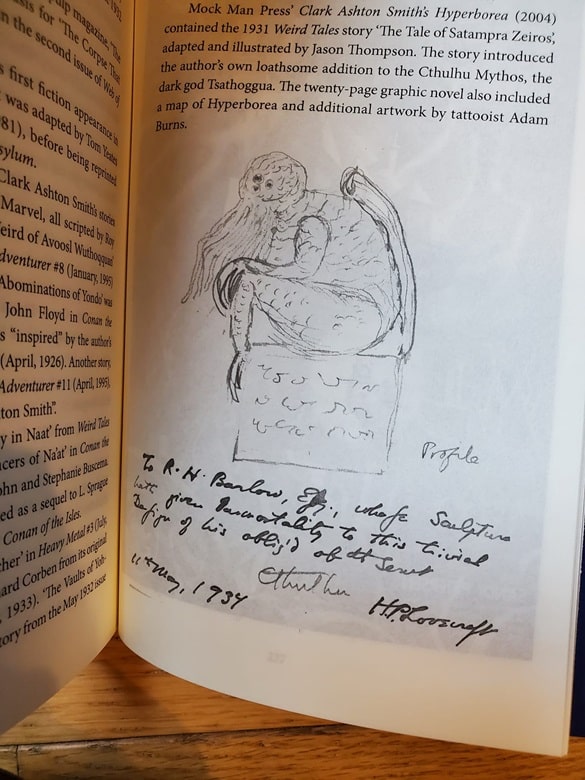 ulp magazine, 'The
esis for 'The Corpse That
n the second issue of Web of
s first fiction appearance in
was adapted by Tom Yeates
81), before being reprinted
sylum.
Clark Ashton Smith's stories
Marvel, all scripted by Roy
eird of Avoosl Wuthoqquan'
dventurer #8 (January, 1995)
Abominations of Yondo' was
John Floyd in Conan the
s "inspired" by the author's
(April, 1926). Another story,
Adventurer #11 (April, 1995),
ton Smith".
y in Naat' from Weird Tales
ncers of Na'at' in Conan the
ohn and Stephanie Buscema.
ed as a sequel to L. Sprague
Conan of the Isles.
her' in Heavy Metal #3 (July,
ard Corben from its original
, 1933). 'The Vaults of Yoh-
tory from the May 1932 issue
Mock Man Press' Clark Ashton Smith's Hyperborea (2004)
contained the 1931 Weird Tales story 'The Tale of Satampra Zeiros',
adapted and illustrated by Jason Thompson. The story introduced
the author's own loathsome addition to the Cthulhu Mythos, the
dark god Tsathoggua. The twenty-page graphic novel also included
a map of Hyperborea and additional artwork by tattooist Adam
Burns.
Profile
To R. H. Barlow, Esq., whose Sculpture
hath given Immortality to this trivial
Design of his oblig'd obt Servt
Cthulhu
11th May, 1934
H.P. Lovecraft
237